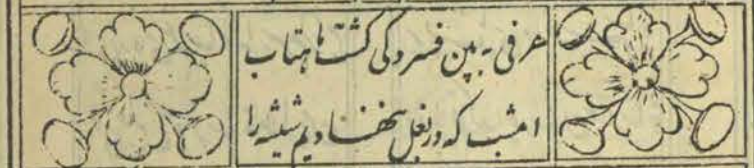 عرفی به بین فسردگی کشت ماهتاب
امشب که در بغل ننهادیم شیشه را